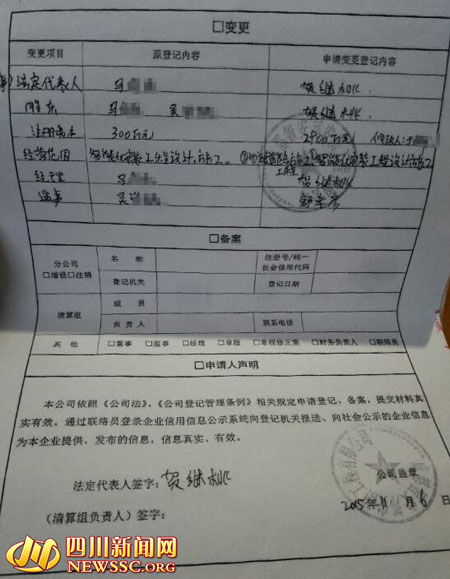 □变更
变更项目 原登记内容 申请变更登记内容
法定代表人 马 贺继
股东 马 吴 贺继
注册资本 300万元 2800万元
经营范围 智能化安装工程设计、施工。
工程
经理 马 贺继
监事 吴
□备案
分公司 □增设□注销 名称 注册号/统一社会信用代码
登记机关 登记日期
清算组 成员
负责人 联系电话
其他 □董事 □监事 □经理 □章程 □章程修正案 □财务负责人 □联络员
□申请人声明
本公司依照《公司法》、《公司登记管理条例》相关规定申请登记、备案,提交材料真
实有效。通过联络员登录企业信用信息公示系统向登记机关报送、向社会公示的企业信息
为本企业提供、发布的信息,信息真实、有效。
法定代表人签字:贺继 公司盖章
(清算组负责人)签字: 2015年11月6日
四川新闻网
NEWSSC.ORG